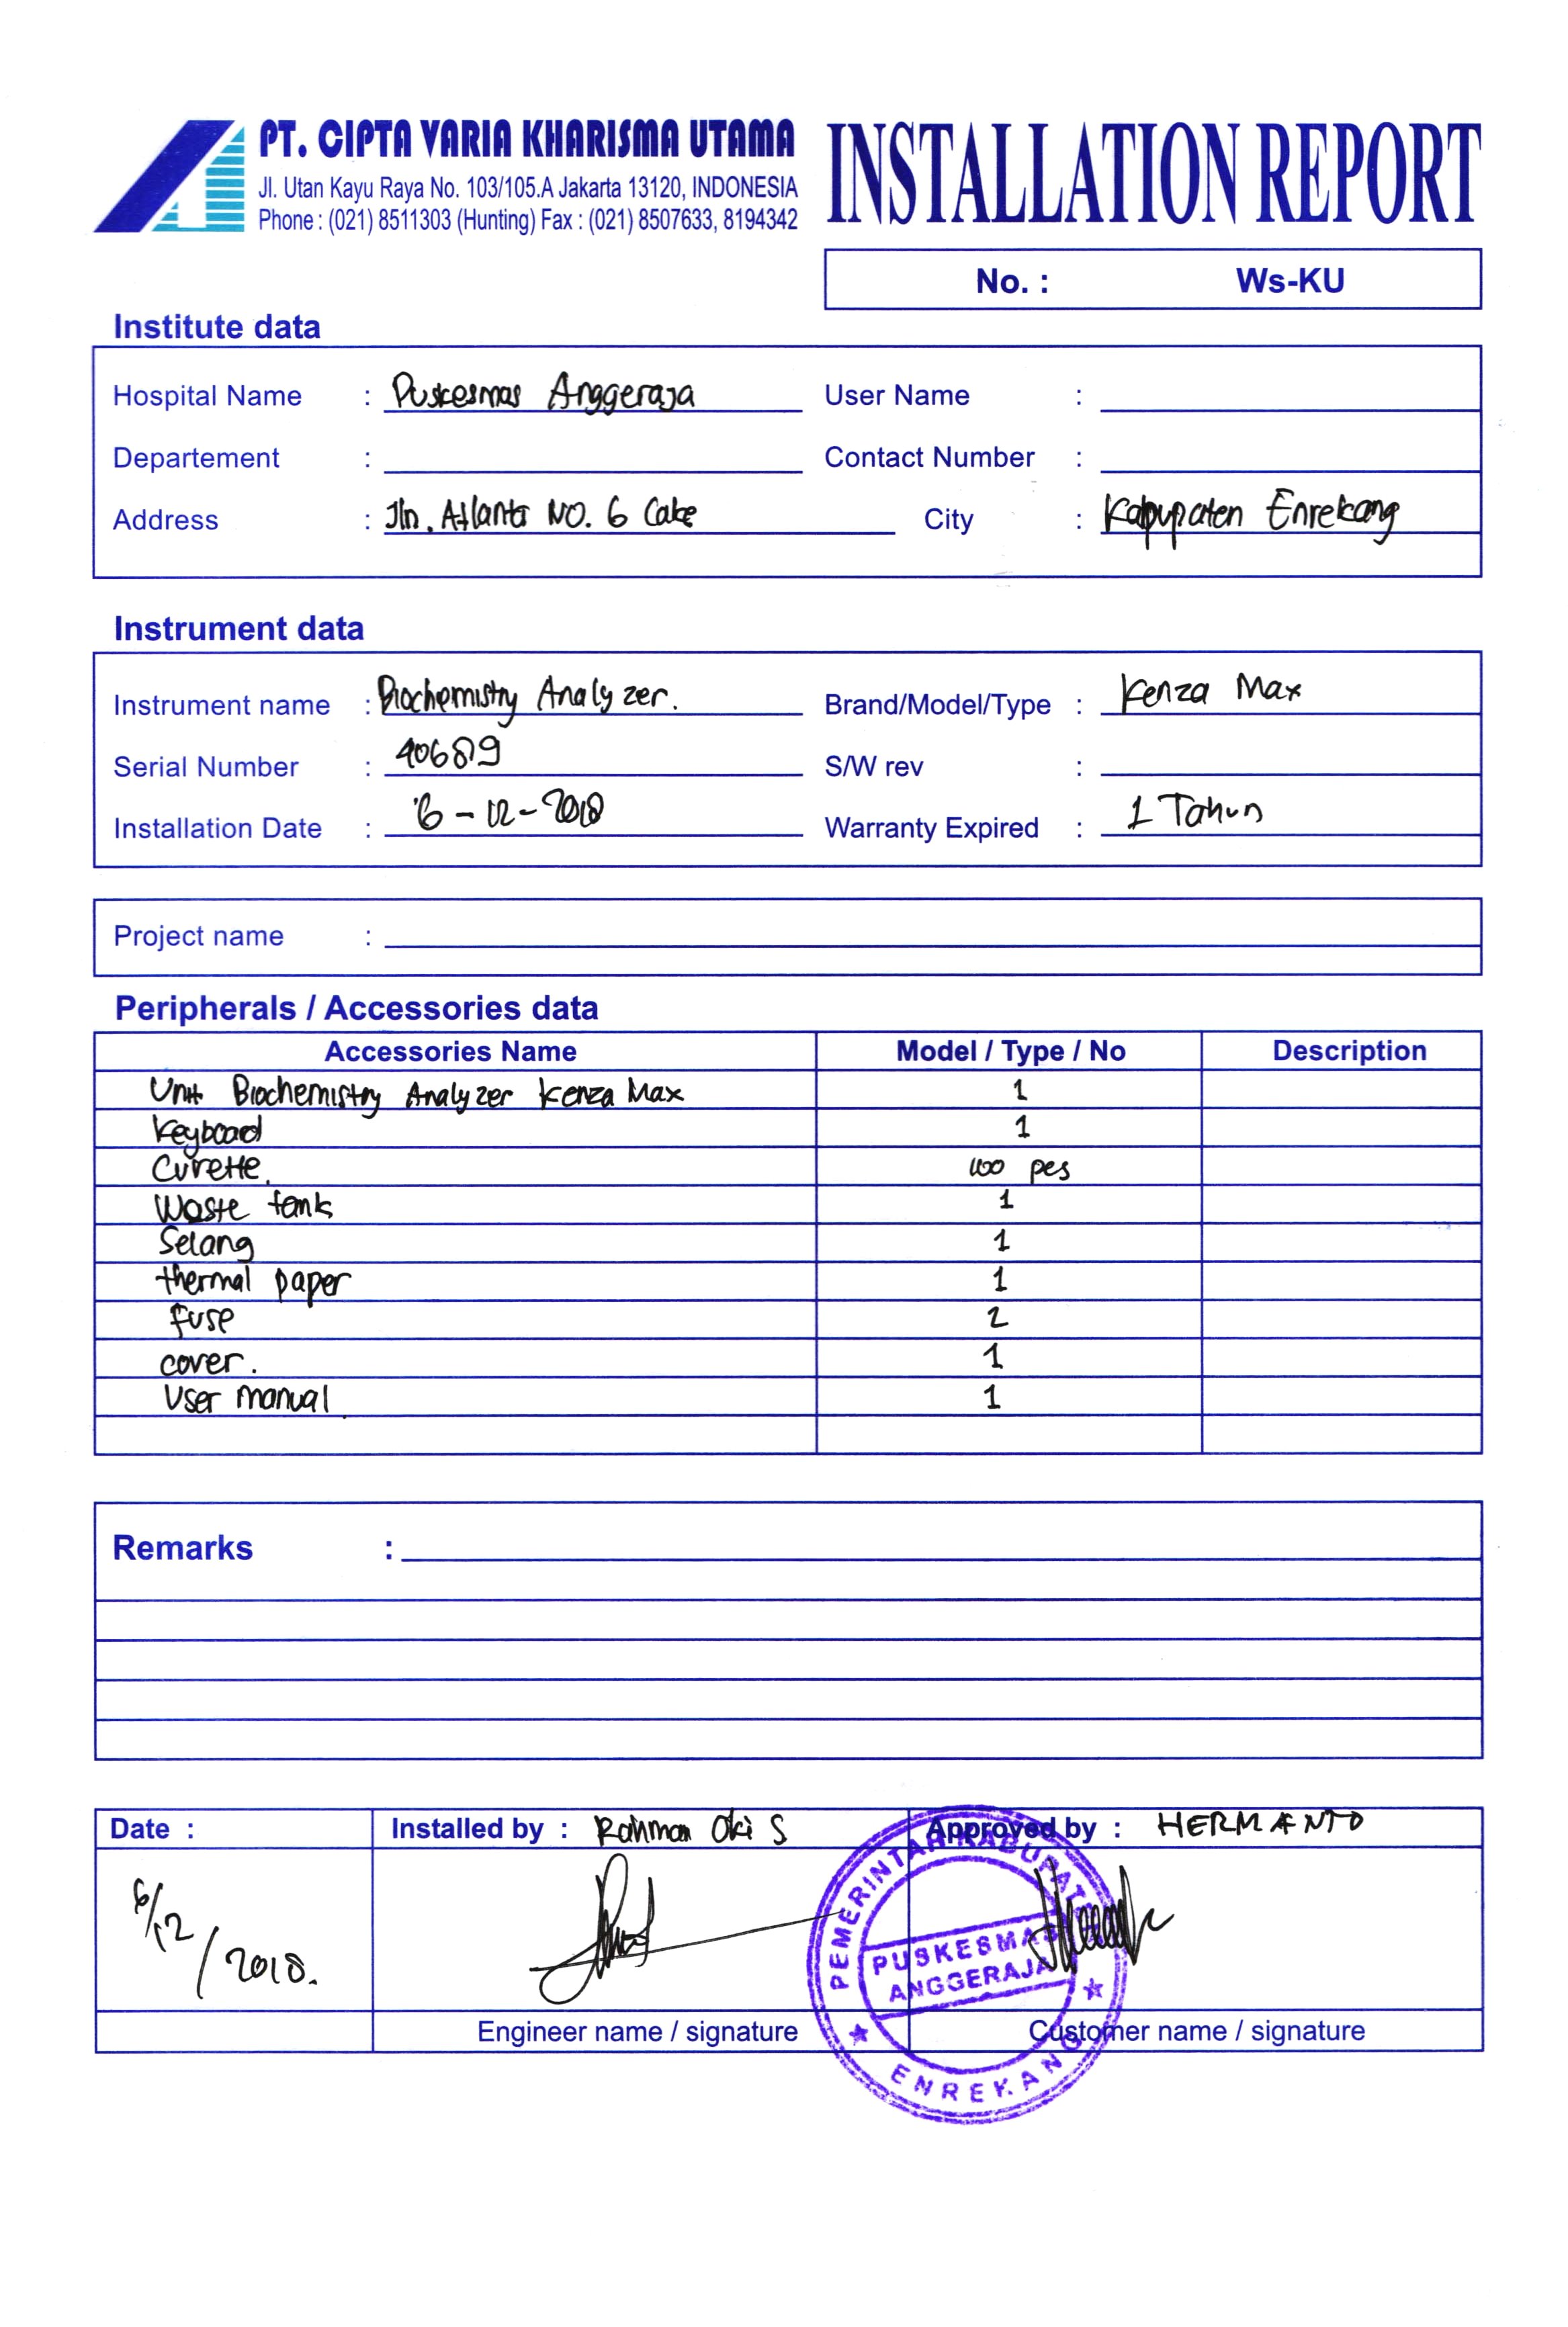 PT. CIPTA VARIA KHARISMA UTAMA
Jl. Utan Kayu Raya No. 103/105.A Jakarta 13120, INDONESIA
Phone : (021) 8511303 (Hunting) Fax : (021) 8507633, 8194342
INSTALLATION REPORT
No. : Ws-KU
Institute data
Hospital Name : Puskesmas Anggeraja User Name :
Departement : Contact Number :
Address : Jln. Atlanta NO. 6 Cake City : Kabupaten Enrekang
Instrument data
Instrument name : Biochemistry Analyzer. Brand/Model/Type : Kenza Max
Serial Number : S/W rev :
Installation Date : 6 - 12 - 2018 Warranty Expired : 1 Tahun
Project name :
Peripherals / Accessories data
Accessories Name Model / Type / No Description
Unit Biochemistry Analyzer Kenza Max 1
Keyboard 1
Cuvette. 100 pcs
Waste tank 1
Selang 1
thermal paper 1
fuse 2
cover. 1
User manual 1
Remarks :
Date : Installed by : Rahman Oki S Approved by : HERMANTO
6/12/2018.
PEMERINTAH KABUPATEN
PUSKESMAS
ANGGERAJA
Engineer name / signature Customer name / signature
ENREKANG